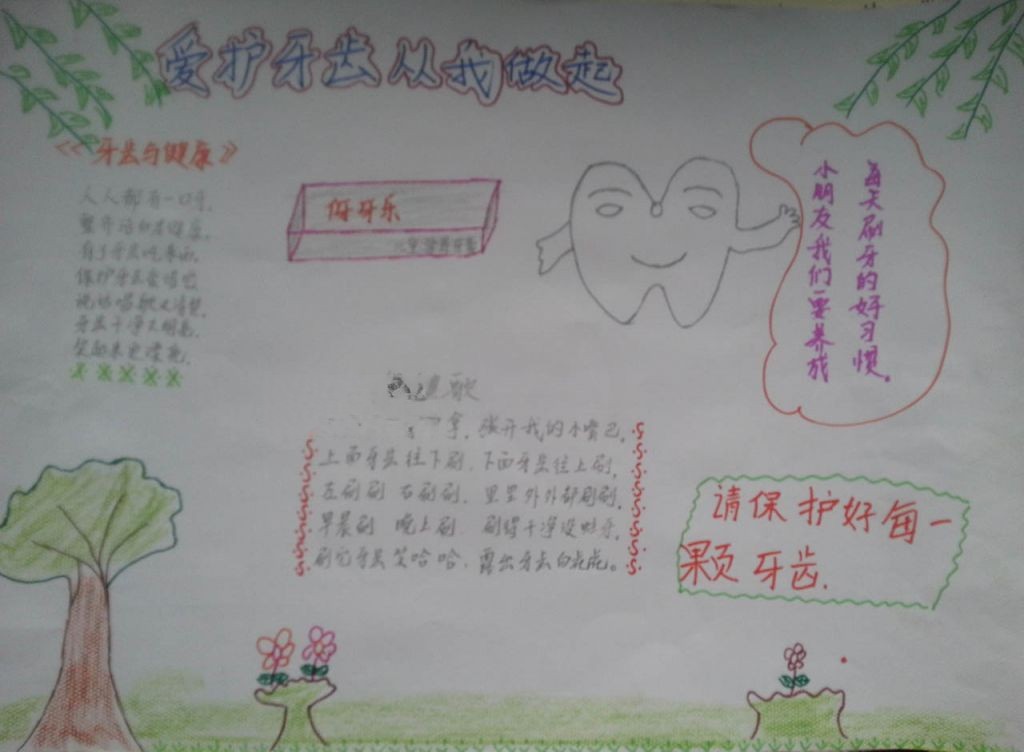 爱护牙齿从我做起
《牙齿与健康》
人人都有一口牙,
整齐洁白
有了牙齿吃东西,
保护牙齿
说话唱歌又清楚,
牙齿干净又明亮,
笑起来更漂亮.
牙乐
儿童营养牙膏
每天刷牙的好习惯.
小朋友我们要养成
歌
拿,张开我的小嘴巴,
上面牙齿往下刷,下面牙齿往上刷,
左刷刷 右刷刷,里里外外都刷刷,
早晨刷 晚上刷 刷得干净没蛀牙,
刷完牙齿笑哈哈,露出牙齿白花花。
请保护好每一
颗牙齿.